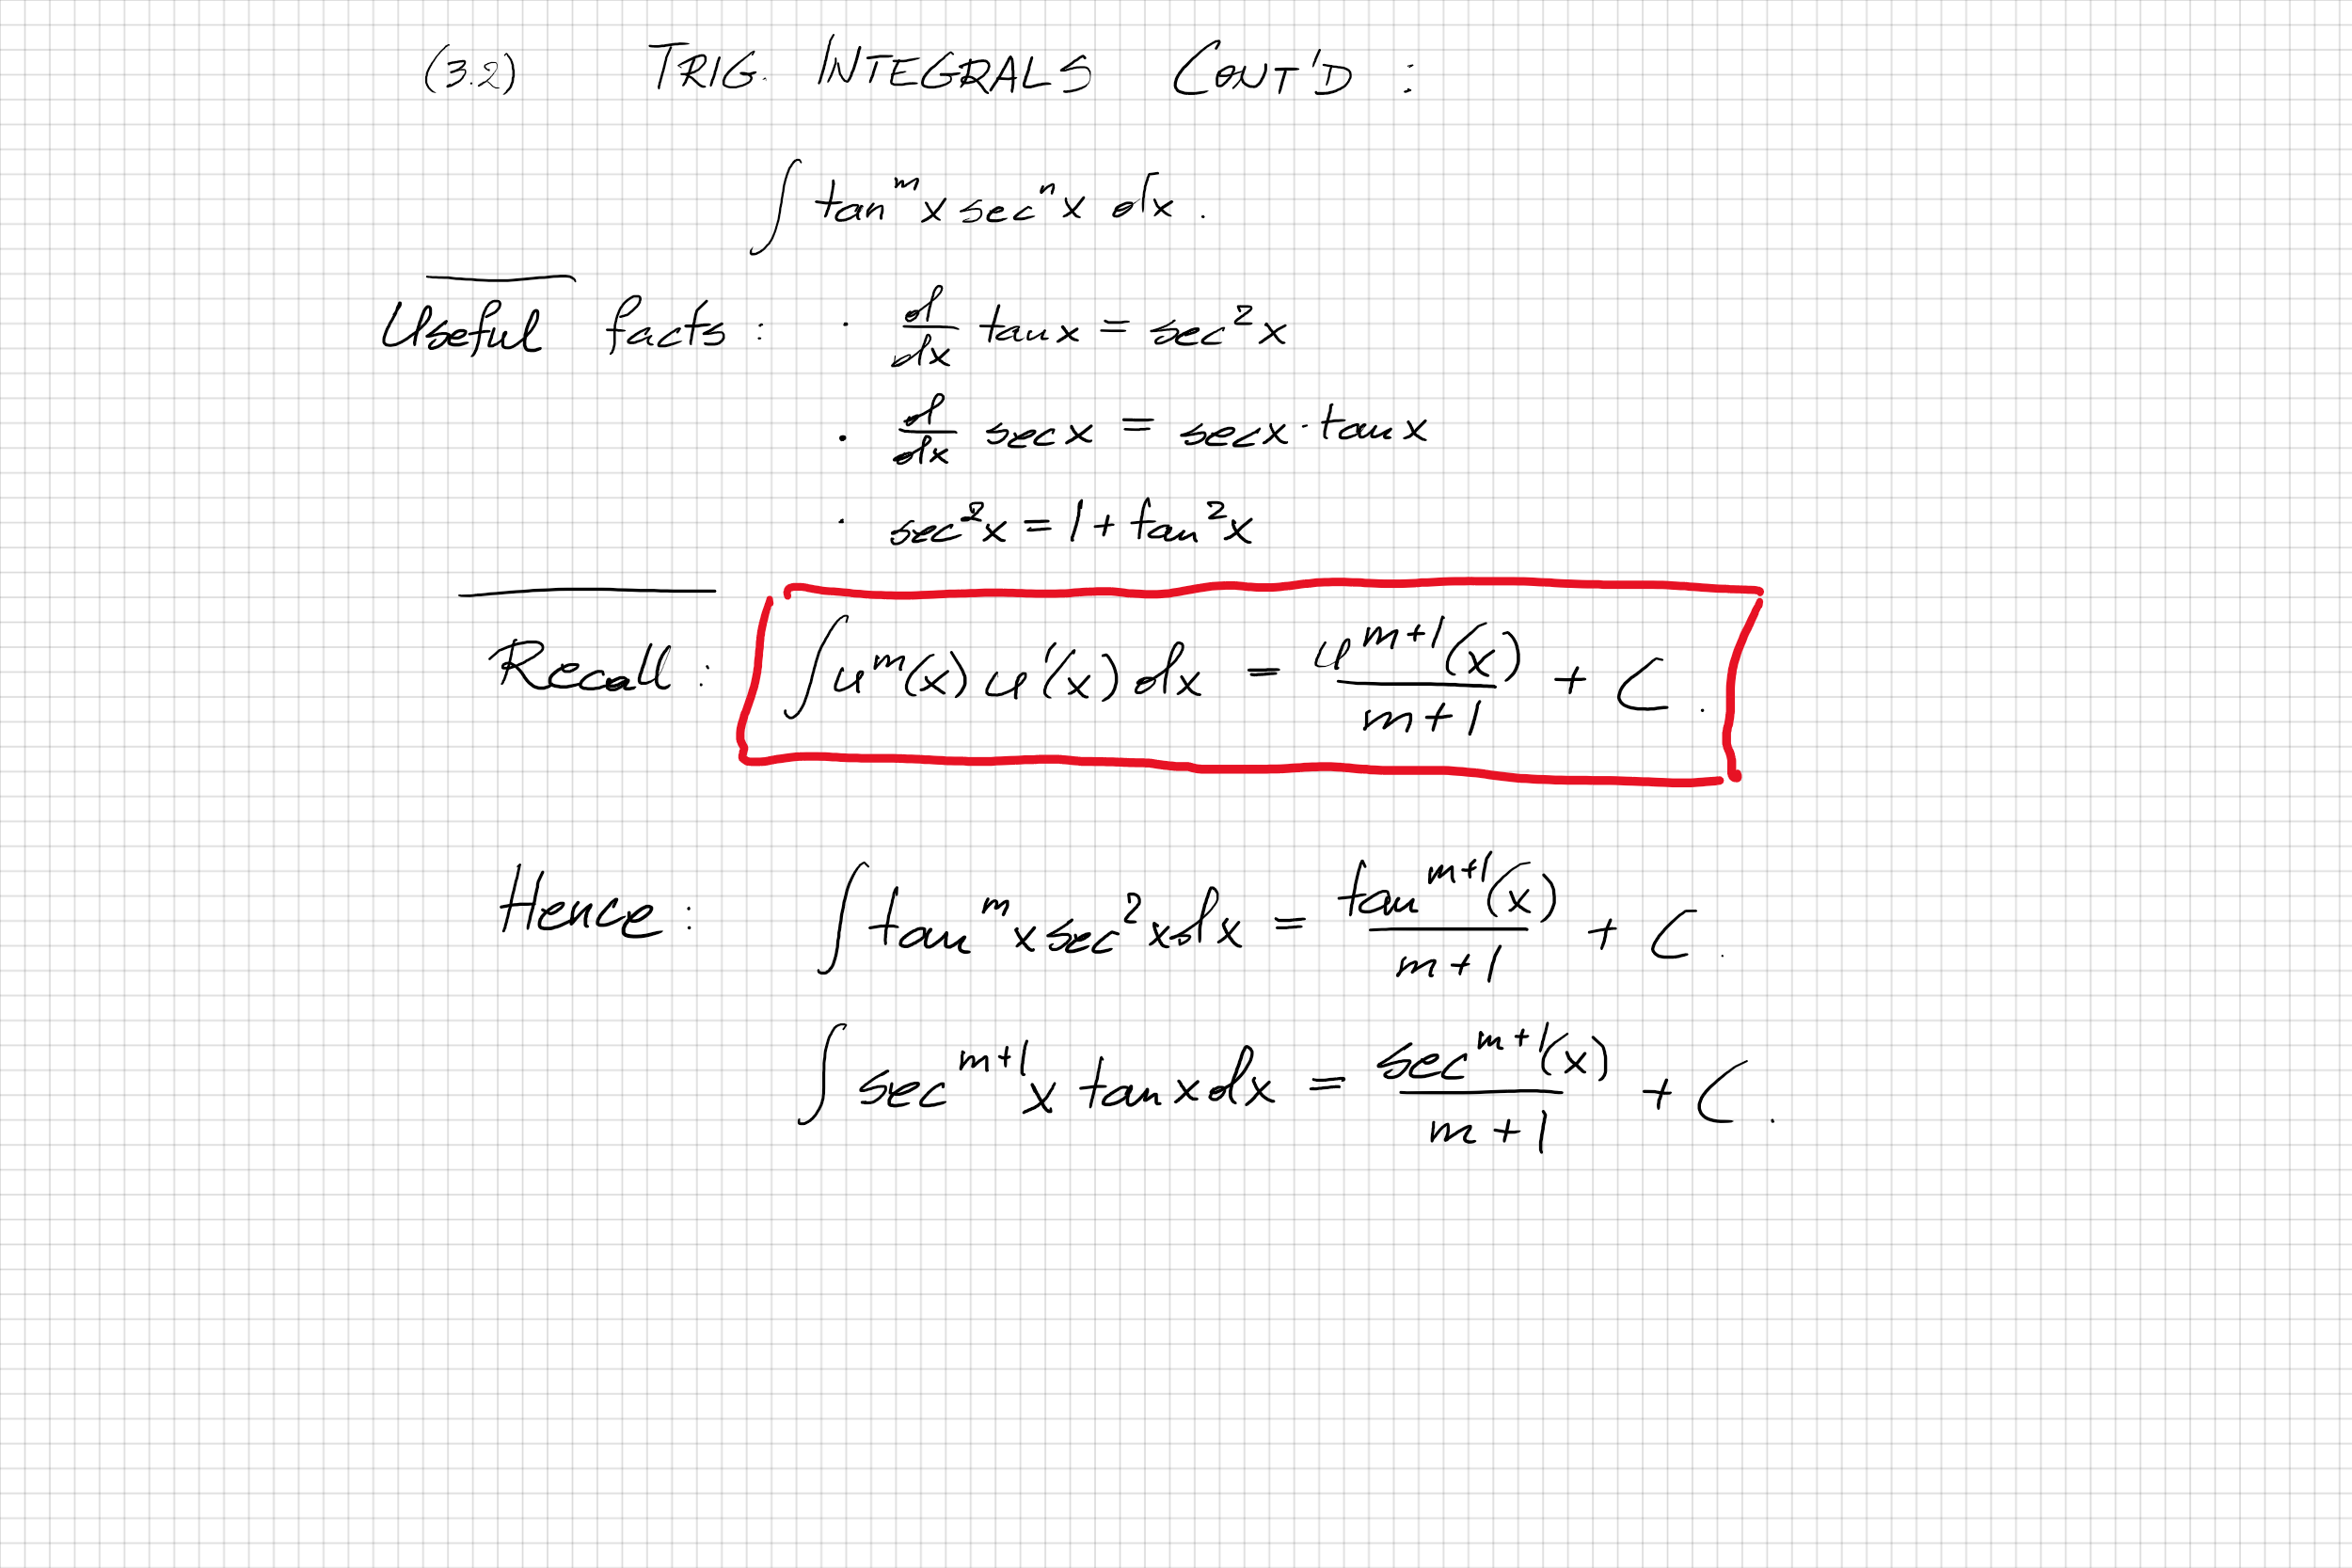 (3.2) TRIG. INTEGRALS CONT'D :
∫ tan^m x sec^n x dx .
Useful facts : · d/dx tan x = sec² x
· d/dx sec x = sec x · tan x
· sec² x = 1 + tan² x
Recall : ∫ u^m(x) u'(x) dx = u^{m+1}(x) / m+1 + C .
Hence : ∫ tan^m x sec² x dx = tan^{m+1}(x) / m+1 + C .
∫ sec^{m+1} x tan x dx = sec^{m+1}(x) / m+1 + C .